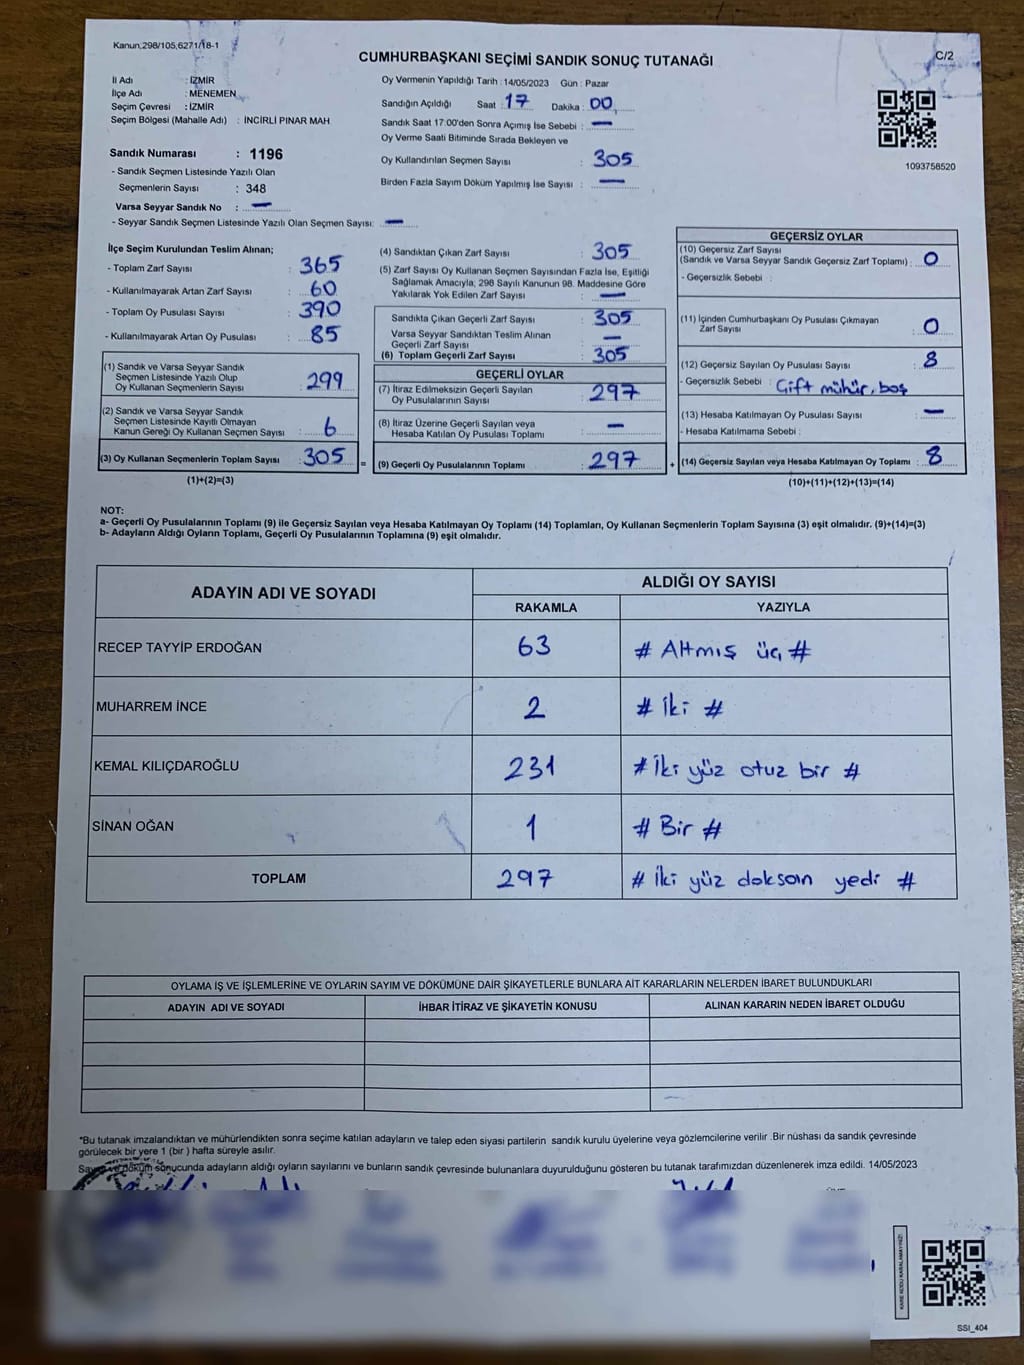 Kanun,298/105,6271/18-1
C/2
CUMHURBAŞKANI SEÇİMİ SANDIK SONUÇ TUTANAĞI
İl Adı : İZMİR
İlçe Adı : MENEMEN
Seçim Çevresi : İZMİR
Seçim Bölgesi (Mahalle Adı) : İNCİRLİ PINAR MAH.
Sandık Numarası : 1196
- Sandık Seçmen Listesinde Yazılı Olan
Seçmenlerin Sayısı : 348
Varsa Seyyar Sandık No : —
- Seyyar Sandık Seçmen Listesinde Yazılı Olan Seçmen Sayısı: —
Oy Vermenin Yapıldığı Tarih : 14/05/2023 Gün : Pazar
Sandığın Açıldığı Saat : 17 Dakika : 00
Sandık Saat 17:00'den Sonra Açımış İse Sebebi : —
Oy Verme Saati Bitiminde Sırada Bekleyen ve
Oy Kullandırılan Seçmen Sayısı : 305
Birden Fazla Sayım Döküm Yapılmış İse Sayısı : —
1093758520
İlçe Seçim Kurulundan Teslim Alınan;
- Toplam Zarf Sayısı : 365
- Kullanılmayarak Artan Zarf Sayısı : 60
- Toplam Oy Pusulası Sayısı : 390
- Kullanılmayarak Artan Oy Pusulası : 85
(1) Sandık ve Varsa Seyyar Sandık
Seçmen Listesinde Yazılı Olup
Oy Kullanan Seçmenlerin Sayısı : 299
(2) Sandık ve Varsa Seyyar Sandık
Seçmen Listesinde Kayıtlı Olmayan
Kanun Gereği Oy Kullanan Seçmen Sayısı : 6
(3) Oy Kullanan Seçmenlerin Toplam Sayısı : 305
(1)+(2)=(3)
(4) Sandıktan Çıkan Zarf Sayısı : 305
(5) Zarf Sayısı Oy Kullanan Seçmen Sayısından Fazla İse, Eşitliği
Sağlamak Amacıyla, 298 Sayılı Kanunun 98. Maddesine Göre
Yakılarak Yok Edilen Zarf Sayısı : —
Sandıkta Çıkan Geçerli Zarf Sayısı : 305
Varsa Seyyar Sandıktan Teslim Alınan
Geçerli Zarf Sayısı : —
(6) Toplam Geçerli Zarf Sayısı : 305
GEÇERLİ OYLAR
(7) İtiraz Edilmeksizin Geçerli Sayılan
Oy Pusulalarının Sayısı : 297
(8) İtiraz Üzerine Geçerli Sayılan veya
Hesaba Katılan Oy Pusulası Toplamı : —
= (9) Geçerli Oy Pusulalarının Toplamı : 297
GEÇERSİZ OYLAR
(10) Geçersiz Zarf Sayısı
(Sandık ve Varsa Seyyar Sandık Geçersiz Zarf Toplamı) : 0
- Geçersizlik Sebebi :
(11) İçinden Cumhurbaşkanı Oy Pusulası Çıkmayan
Zarf Sayısı : 0
(12) Geçersiz Sayılan Oy Pusulası Sayısı : 8
- Geçersizlik Sebebi : Çift mühür, boş
(13) Hesaba Katılmayan Oy Pusulası Sayısı : —
- Hesaba Katılmama Sebebi :
+ (14) Geçersiz Sayılan veya Hesaba Katılmayan Oy Toplamı : 8
(10)+(11)+(12)+(13)=(14)
NOT:
a- Geçerli Oy Pusulalarının Toplamı (9) ile Geçersiz Sayılan veya Hesaba Katılmayan Oy Toplamı (14) Toplamları, Oy Kullanan Seçmenlerin Toplam Sayısına (3) eşit olmalıdır. (9)+(14)=(3)
b- Adayların Aldığı Oyların Toplamı, Geçerli Oy Pusulalarının Toplamına (9) eşit olmalıdır.
ADAYIN ADI VE SOYADI
ALDIĞI OY SAYISI
RAKAMLA YAZIYLA
RECEP TAYYİP ERDOĞAN 63 # Altmış üç #
MUHARREM İNCE 2 # İki #
KEMAL KILIÇDAROĞLU 231 # İki yüz otuz bir #
SİNAN OĞAN 1 # Bir #
TOPLAM 297 # İki yüz doksan yedi #
OYLAMA İŞ VE İŞLEMLERİNE VE OYLARIN SAYIM VE DÖKÜMÜNE DAİR ŞİKAYETLERLE BUNLARA AİT KARARLARIN NELERDEN İBARET BULUNDUKLARI
ADAYIN ADI VE SOYADI İHBAR İTİRAZ VE ŞİKAYETİN KONUSU ALINAN KARARIN NEDEN İBARET OLDUĞU
*Bu tutanak imzalandıktan ve mühürlendikten sonra seçime katılan adayların ve talep eden siyasi partilerin sandık kurulu üyelerine veya gözlemcilerine verilir .Bir nüshası da sandık çevresinde
görülecek bir yere 1 (bir ) hafta süreyle asılır.
Sayım ve döküm sonucunda adayların aldığı oyların sayılarını ve bunların sandık çevresinde bulunanlara duyurulduğunu gösteren bu tutanak tarafımızdan düzenlenerek imza edildi. 14/05/2023
KARE KODU KARALAMAYINIZ!
SSI_404